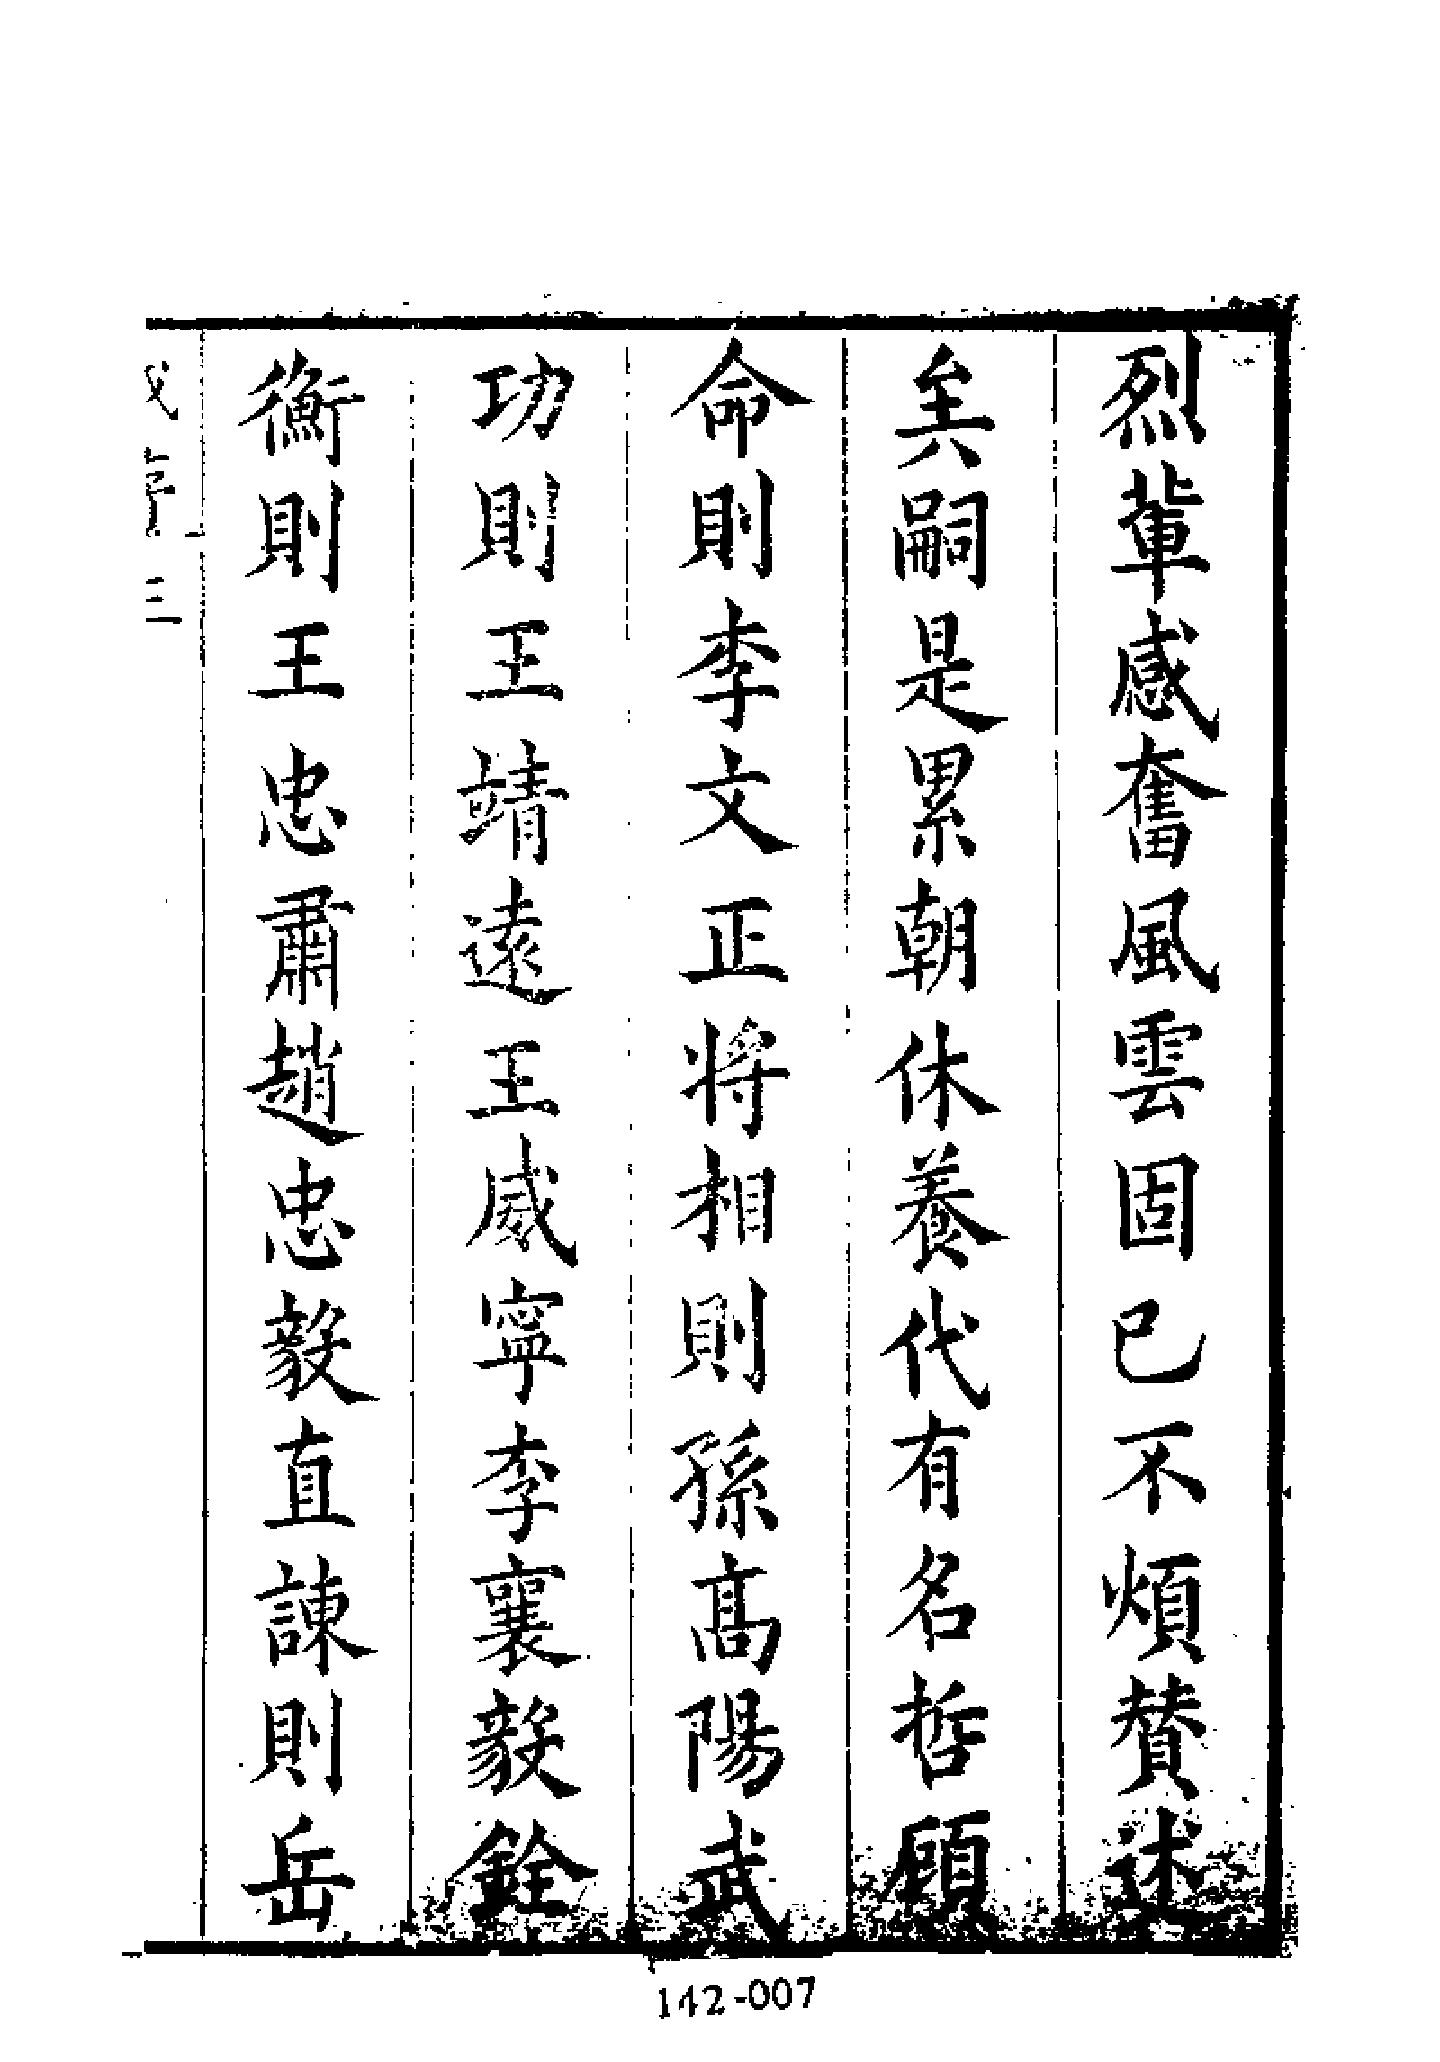 烈軰感奮風雲固已不煩賛述
矣嗣是累朝休養代有名哲顧
命則李文正將相則孫髙陽武
功則王靖遠王威寧李襄毅銓
衡則王忠肅趙忠毅直諌則岳
序 三
142-007